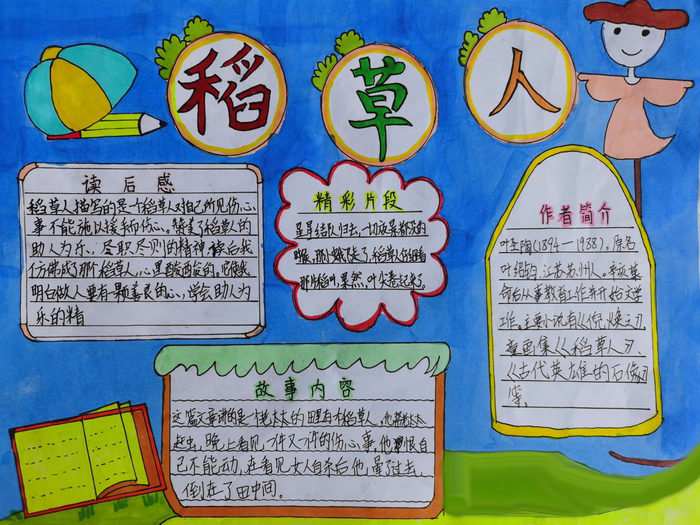 稻草人
读后感
稻草人描写的是一个稻草人对自己所见伤心
事不能施以援手而伤心。赞美了稻草人的
助人为乐、尽职尽则的精神。读后我
仿佛成了那个稻草人,心里酸酸的。它使我
明白做人要有一颗善良的心,学会助人为
乐的精
精彩片段
那片稻叶,果然,叶尖卷起来了。
作者简介
叶圣陶(1894—1988),原名
叶绍钧,江苏苏州人。辛亥革
命后从事教育工作并开始文学
工作。主要小说有《倪焕之》
童画集《稻草人》
《古代英雄的石像》
等。
故事内容
这篇文章讲的是一个老太太的田里有个稻草人,
晚上看见一件又一件的伤心事,他恨自
己不能动,在看见女人自杀后他晕了过去,
倒在了田中间。